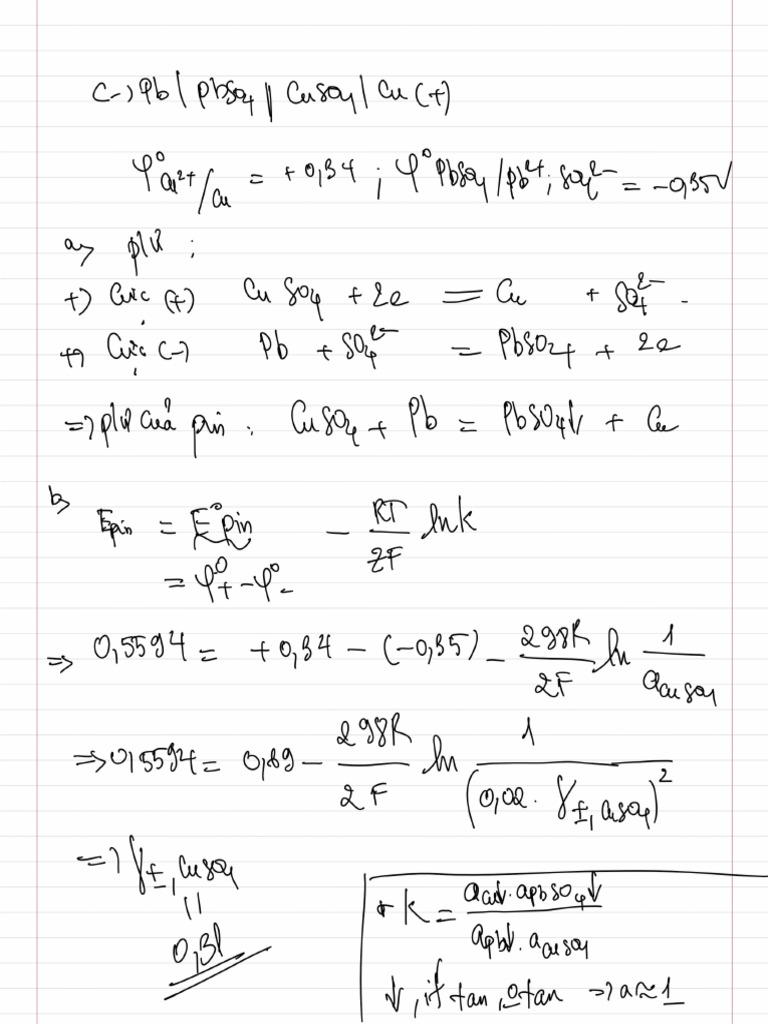 (-) Pb | PbSO4 || CuSO4 | Cu (+)
φ⁰Cu²⁺/Cu = +0,34 ; φ⁰PbSO4/Pb²⁺; SO4²⁻ = -0,35V
a> plư :
+) Cực (+) CuSO4 + 2e = Cu + SO4²⁻.
+) Cực (-) Pb + SO4²⁻ = PbSO4 + 2e
=> plư của pin : CuSO4 + Pb = PbSO4↓ + Cu
b>
Epin = E⁰pin - RT/ZF ln k
= φ⁰+ - φ⁰-
=> 0,5594 = +0,34 - (-0,35) - 298R/2F ln 1/aCuSO4
=> 0,5594 = 0,69 - 298R/2F ln 1/(0,02 . γ±,CuSO4)²
=> γ±,CuSO4
=
0,31
+ K = aCu↓ . aPbSO4↓ / aPb↓ . aCuSO4
↓, ít tan, 0 tan => a ≈ 1